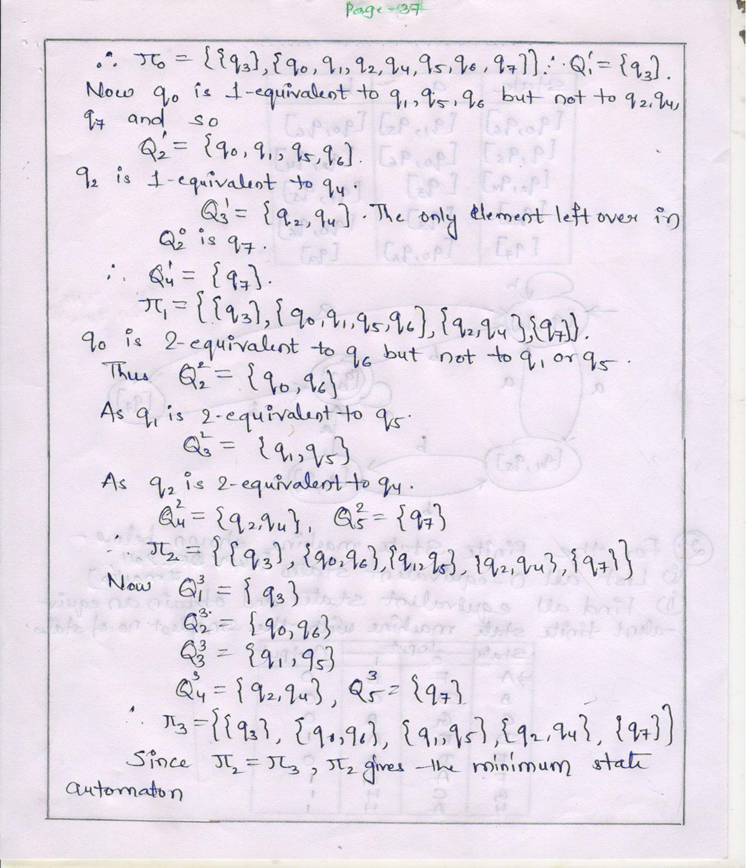 Page-37
∴ π₀ = {{q₃}, {q₀, q₁, q₂, q₄, q₅, q₆, q₇}} ∴ Q₁' = {q₃}.
Now q₀ is 1-equivalent to q₁, q₅, q₆ but not to q₂, q₄,
q₇ and so
Q₂' = {q₀, q₁, q₅, q₆}.
q₂ is 1-equivalent to q₄.
Q₃' = {q₂, q₄}. The only element left over in
Q₂⁰ is q₇.
∴ Q₄' = {q₇}.
π₁ = {{q₃}, {q₀, q₁, q₅, q₆}, {q₂, q₄}, {q₇}}.
q₀ is 2-equivalent to q₆ but not to q₁ or q₅.
Thus Q₂² = {q₀, q₆}
As q₁ is 2-equivalent to q₅.
Q₃² = {q₁, q₅}
As q₂ is 2-equivalent to q₄.
Q₄² = {q₂, q₄}, Q₅² = {q₇}
∴ π₂ = {{q₃}, {q₀, q₆}, {q₁, q₅}, {q₂, q₄}, {q₇}}
Now Q₁³ = {q₃}
Q₂³ = {q₀, q₆}
Q₃³ = {q₁, q₅}
Q₄³ = {q₂, q₄}, Q₅³ = {q₇}
∴ π₃ = {{q₃}, {q₀, q₆}, {q₁, q₅}, {q₂, q₄}, {q₇}}
Since π₂ = π₃, π₂ gives the minimum state
automaton